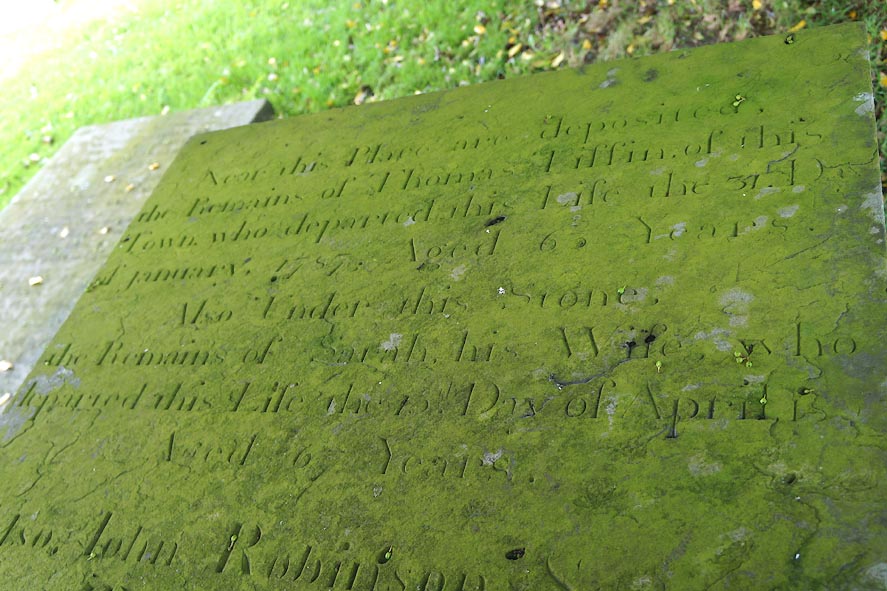 Near this Place are deposited,
the Remains of Thomas Tiffin, of this
Town, who departed this Life the 31st Day
of January, 1787. Aged 6 Years.
Also Under this Stone,
the Remains of Sarah, his Wife, who
departed this Life the Day of April
Aged 6 Years.
John Robinson